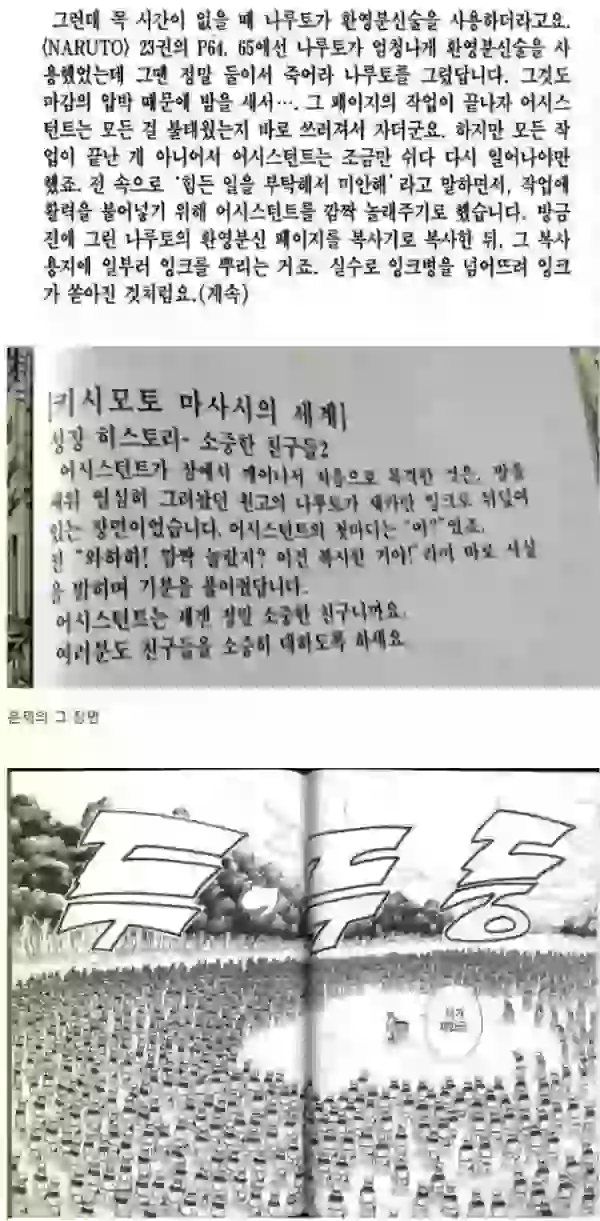 그런데 꼭 시간이 없을 때 나루토가 환영분신술을 사용하더라고요.
〈NARUTO〉 23권의 P64, 65에선 나루토가 엄청나게 환영분신술을 사
용했었는데 그땐 정말 둘이서 죽어라 나루토를 그렸답니다. 그것도
마감의 압박 때문에 밤을 새서…. 그 페이지의 작업이 끝나자 어시스
턴트는 모든 걸 불태웠는지 바로 쓰러져서 자더군요. 하지만 모든 작
업이 끝난 게 아니어서 어시스턴트는 조금만 쉬다 다시 일어나야만
했죠. 전 속으로 '힘든 일을 부탁해서 미안해' 라고 말하면서, 작업에
활력을 불어넣기 위해 어시스턴트를 깜짝 놀래주기로 했습니다. 방금
전에 그린 나루토의 환영분신 페이지를 복사기로 복사한 뒤, 그 복사
용지에 일부러 잉크를 뿌리는 거죠. 실수로 잉크병을 넘어뜨려 잉크
가 쏟아진 것처럼요.(계속)
[키시모토 마사시의 세계]
성장 히스토리- 소중한 친구들2
어시스턴트가 잠에서 깨어나서 처음으로 목격한 것은, 밤을
새워 열심히 그려놨던 원고의 나루토가 새카만 잉크로 뒤덮여
있는 장면이었습니다. 어시스턴트의 첫마디는 "어?" 였죠.
전 "와하하! 깜짝 놀랐지? 이건 복사한 거야!" 라며 바로 사실
을 밝히며 기분을 풀어줬답니다.
어시스턴트는 제겐 정말 소중한 친구니까요.
여러분도 친구들을 소중히 대하도록 하세요.
문제의 그 장면
두두둥